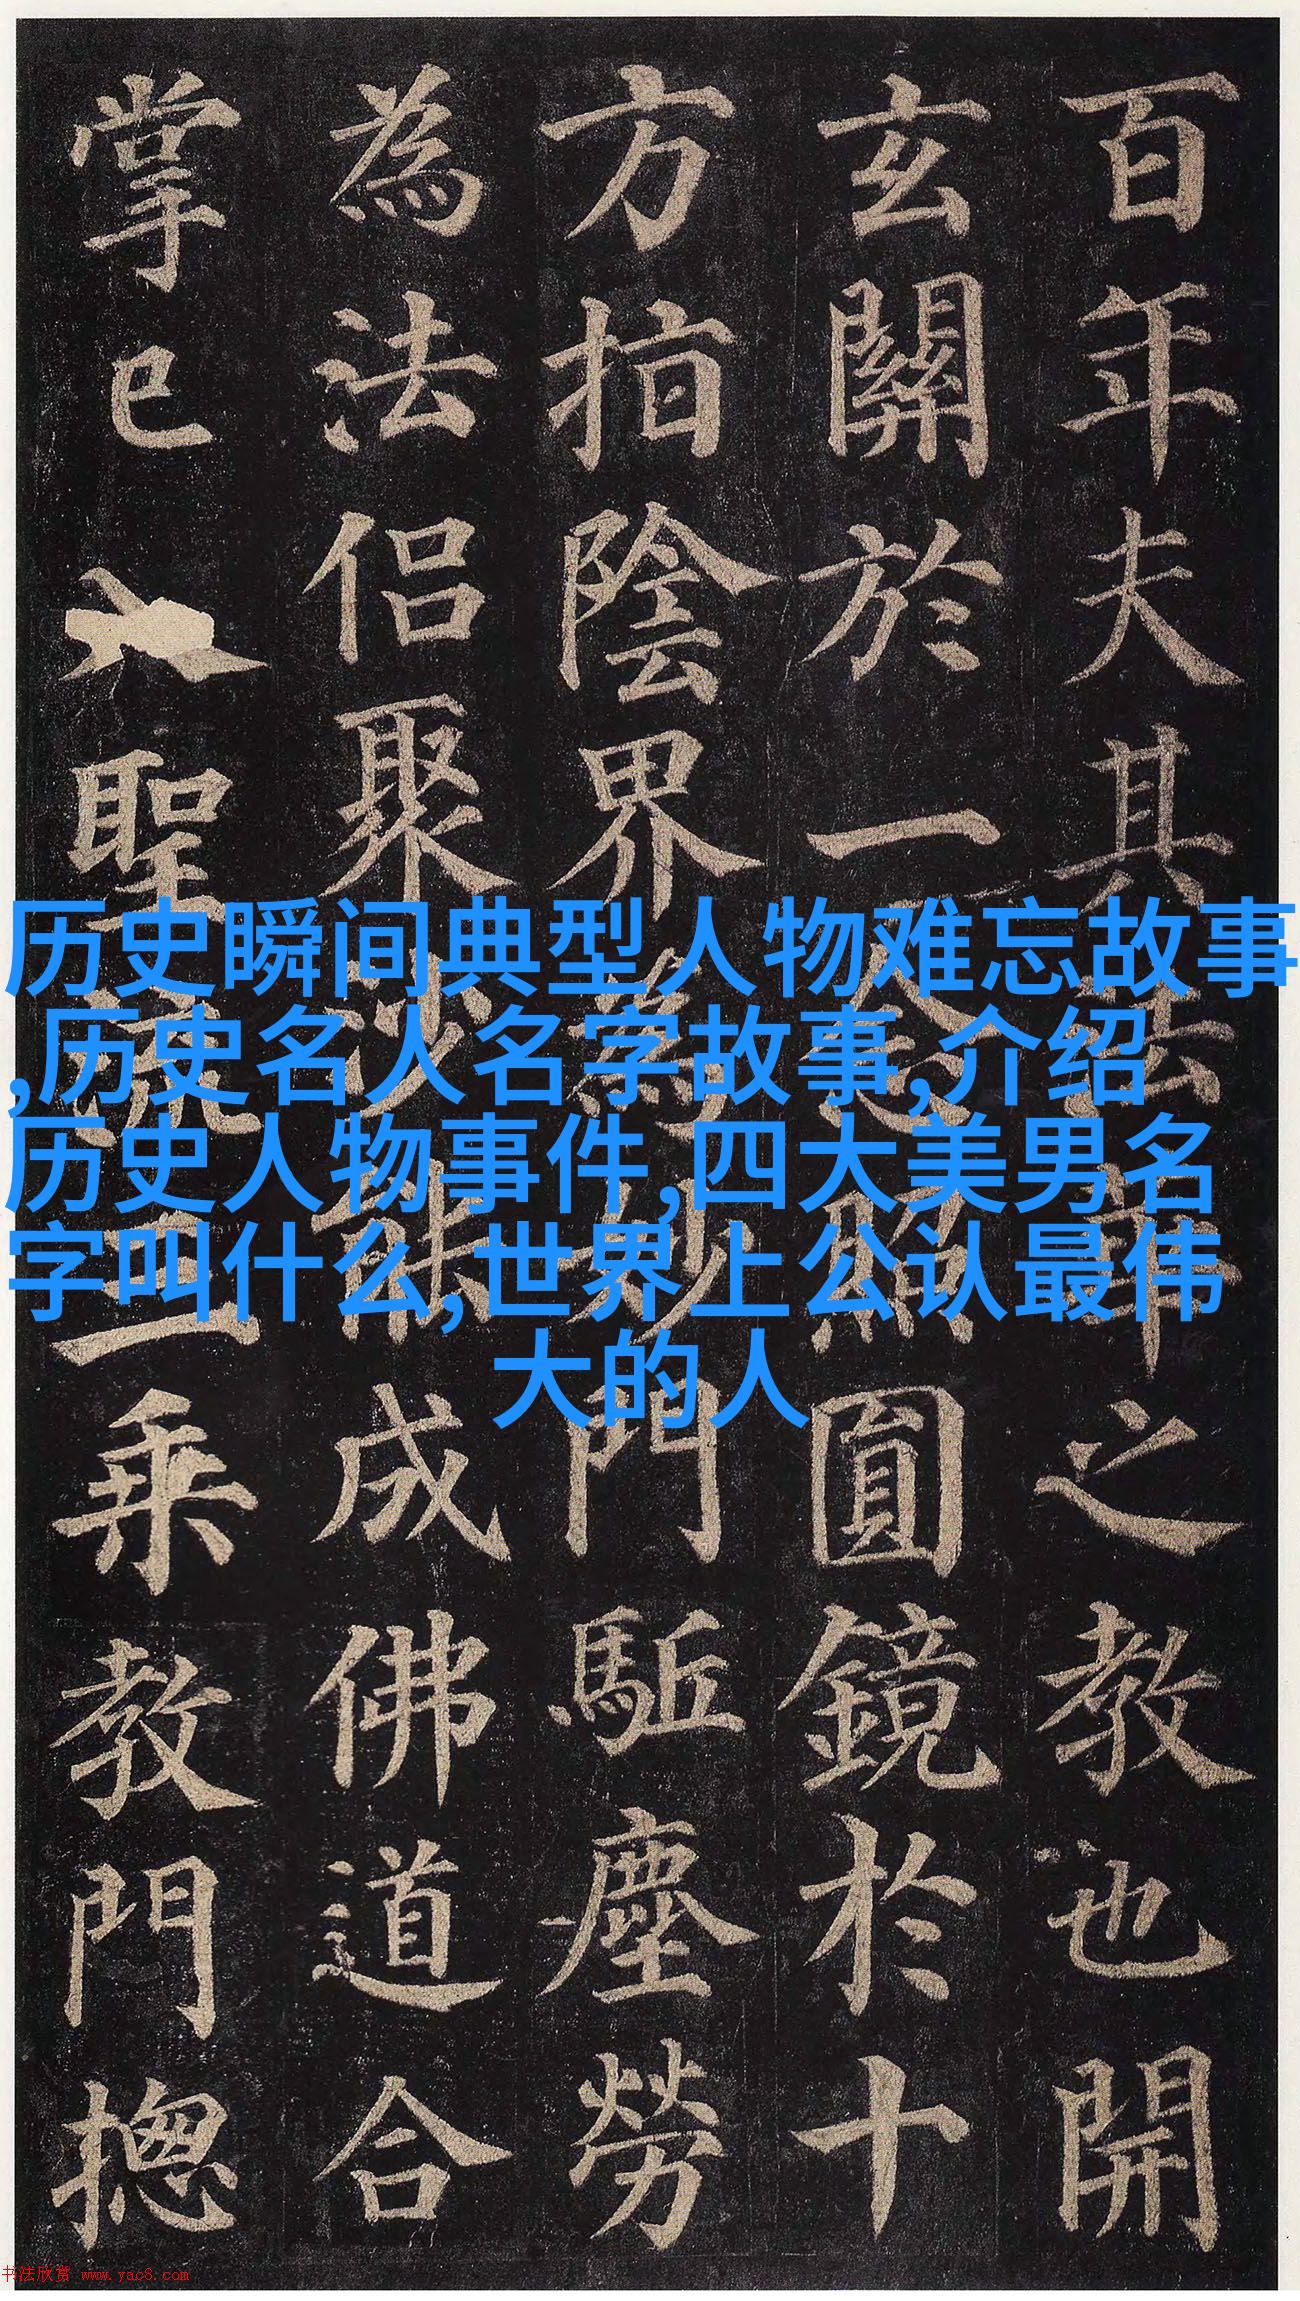 百年夫其法華之教也開
玄關於一念照圓鏡於十
方指陰界為妙門駈塵勞
為法侶聚沙能成佛道合
掌已入聖流三乘教門摠
历史瞬间典型人物难忘故事
,历史名人名字故事,介绍
历史人物事件,四大美男名
字叫什么,世界上公认最伟
大的人
书法欣赏 www.yac8.com